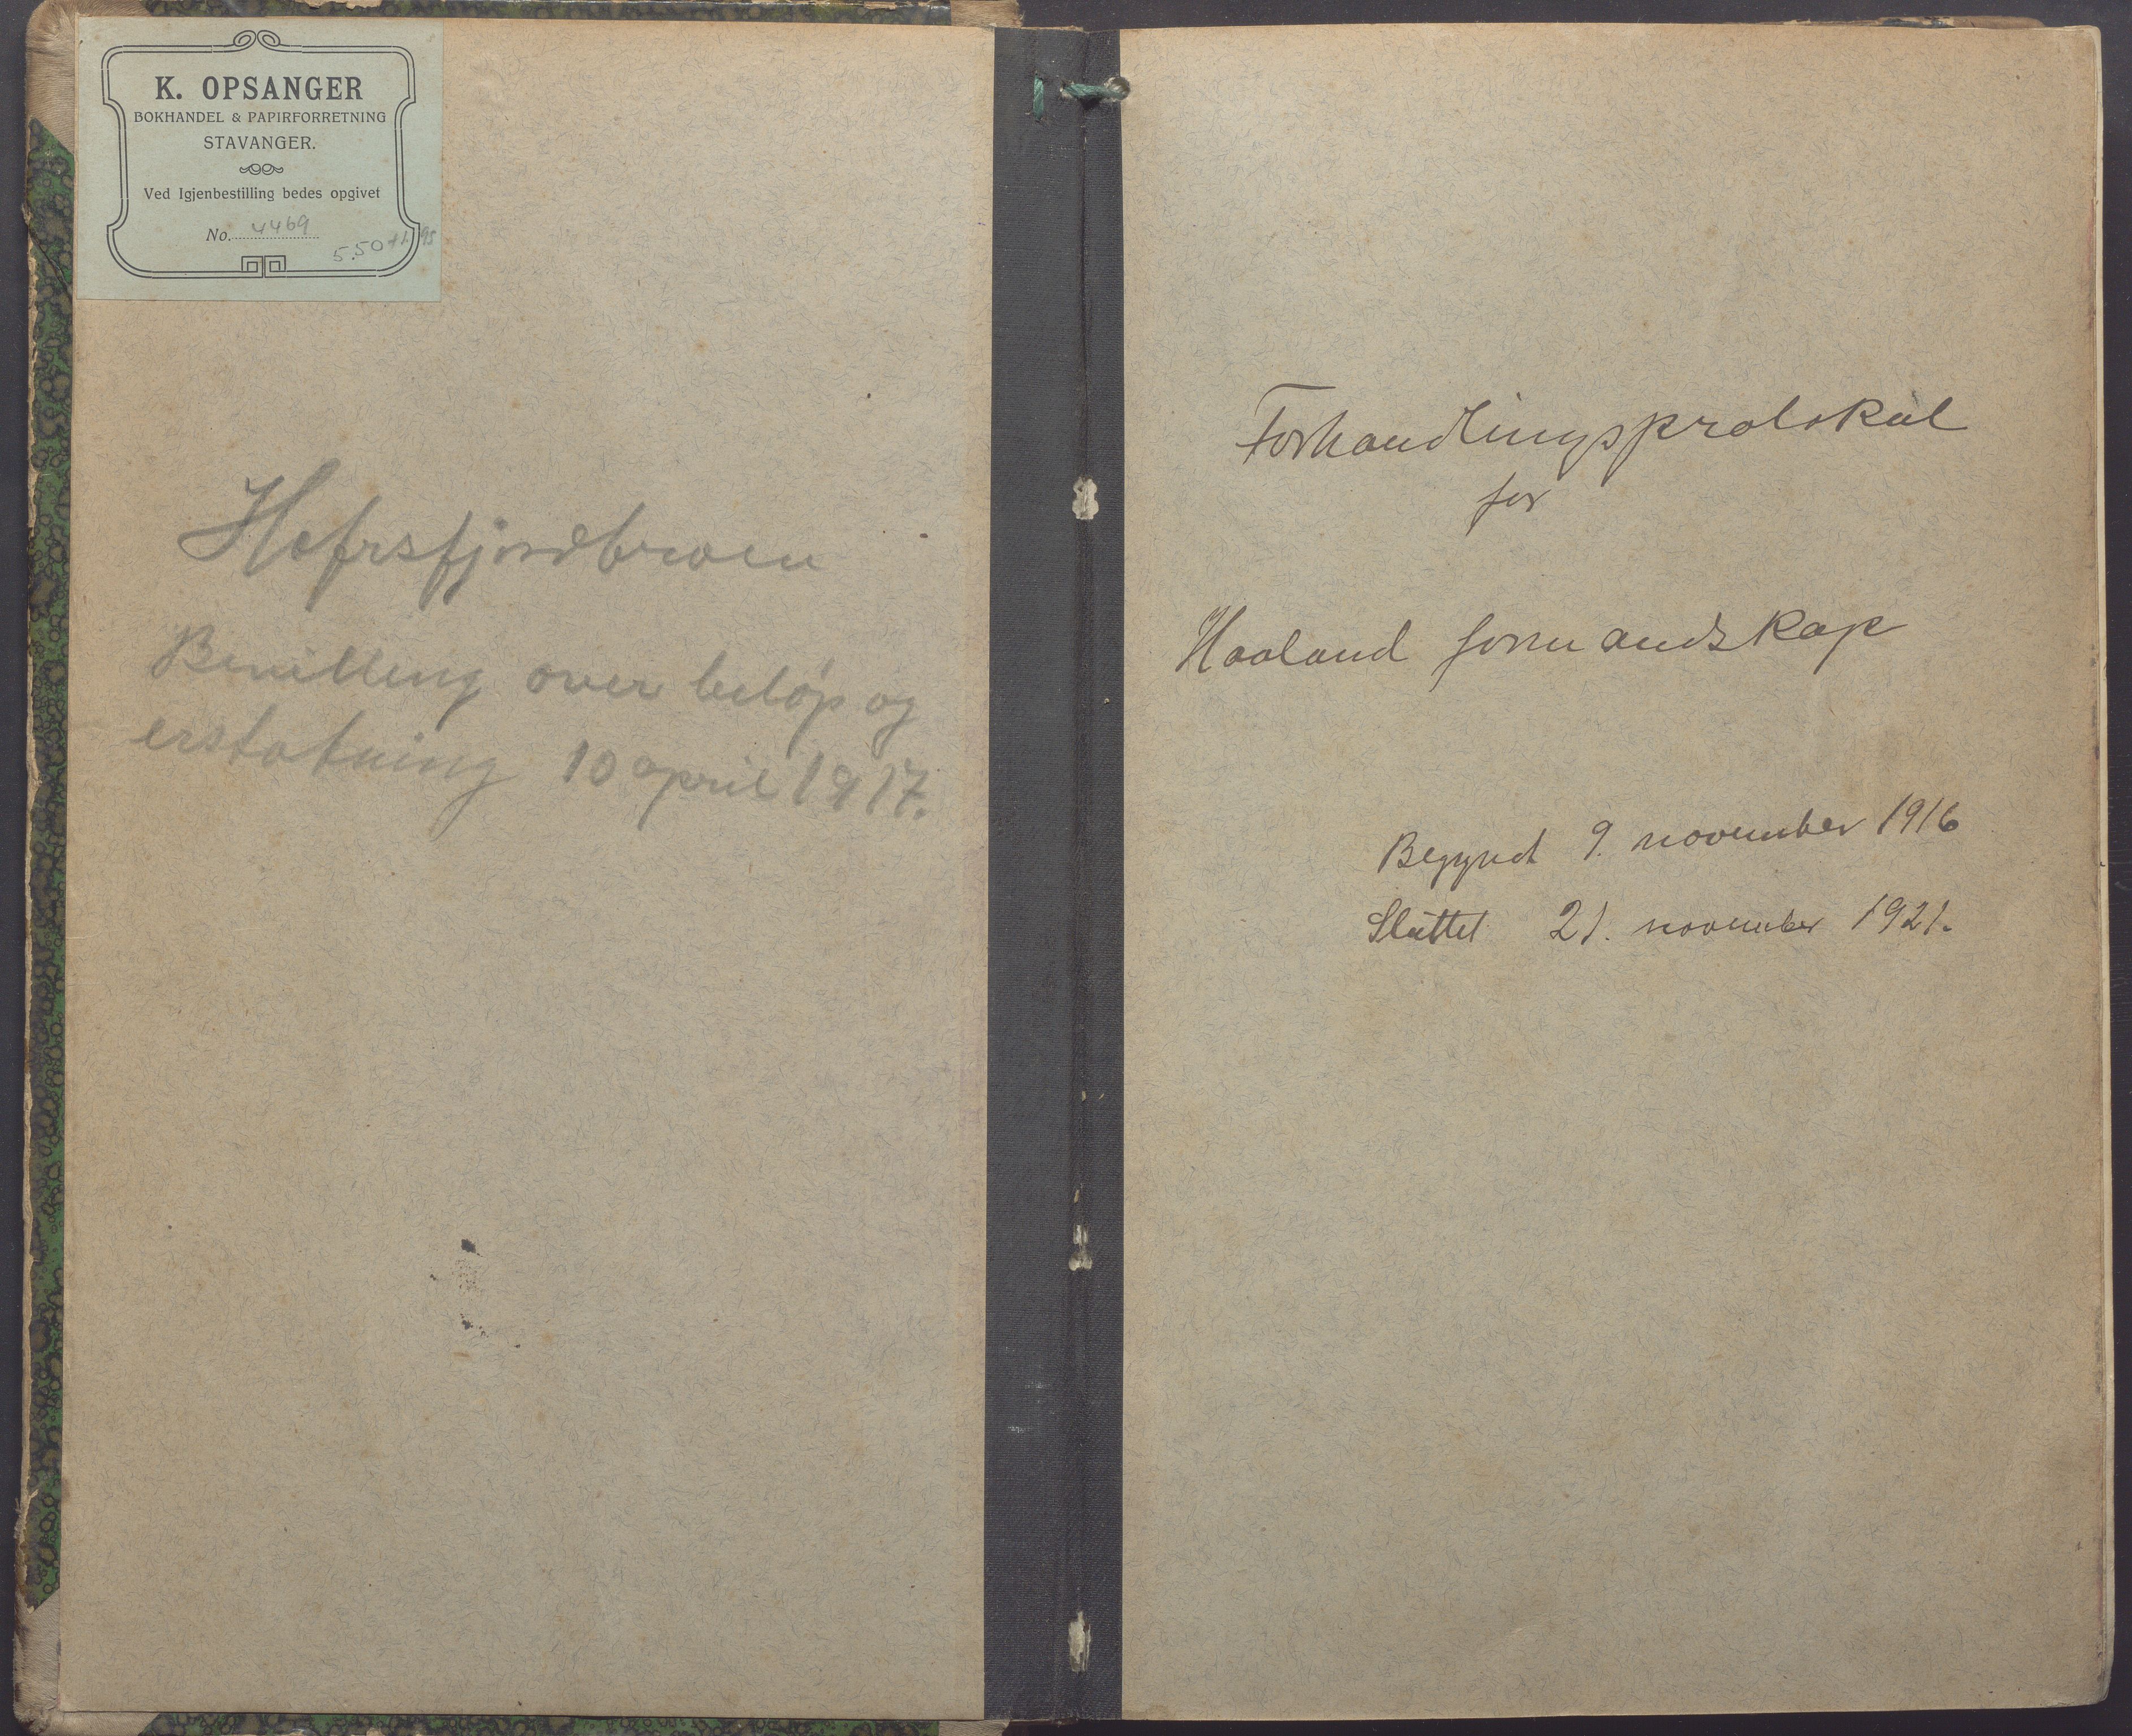 K. OPSANGER
BOKHANDEL & PAPIRFORRETNING
STAVANGER.
Ved Igjenbestilling bedes opgivet
No. 4469
5.50
Hafrsfjordbroen
Bevilling over beløp og
erstatning 10 april 1917.
Forhandlingsprotokol
for
Haaland formandskap
Begynt 9. november 1916
Sluttet 21. november 1921.